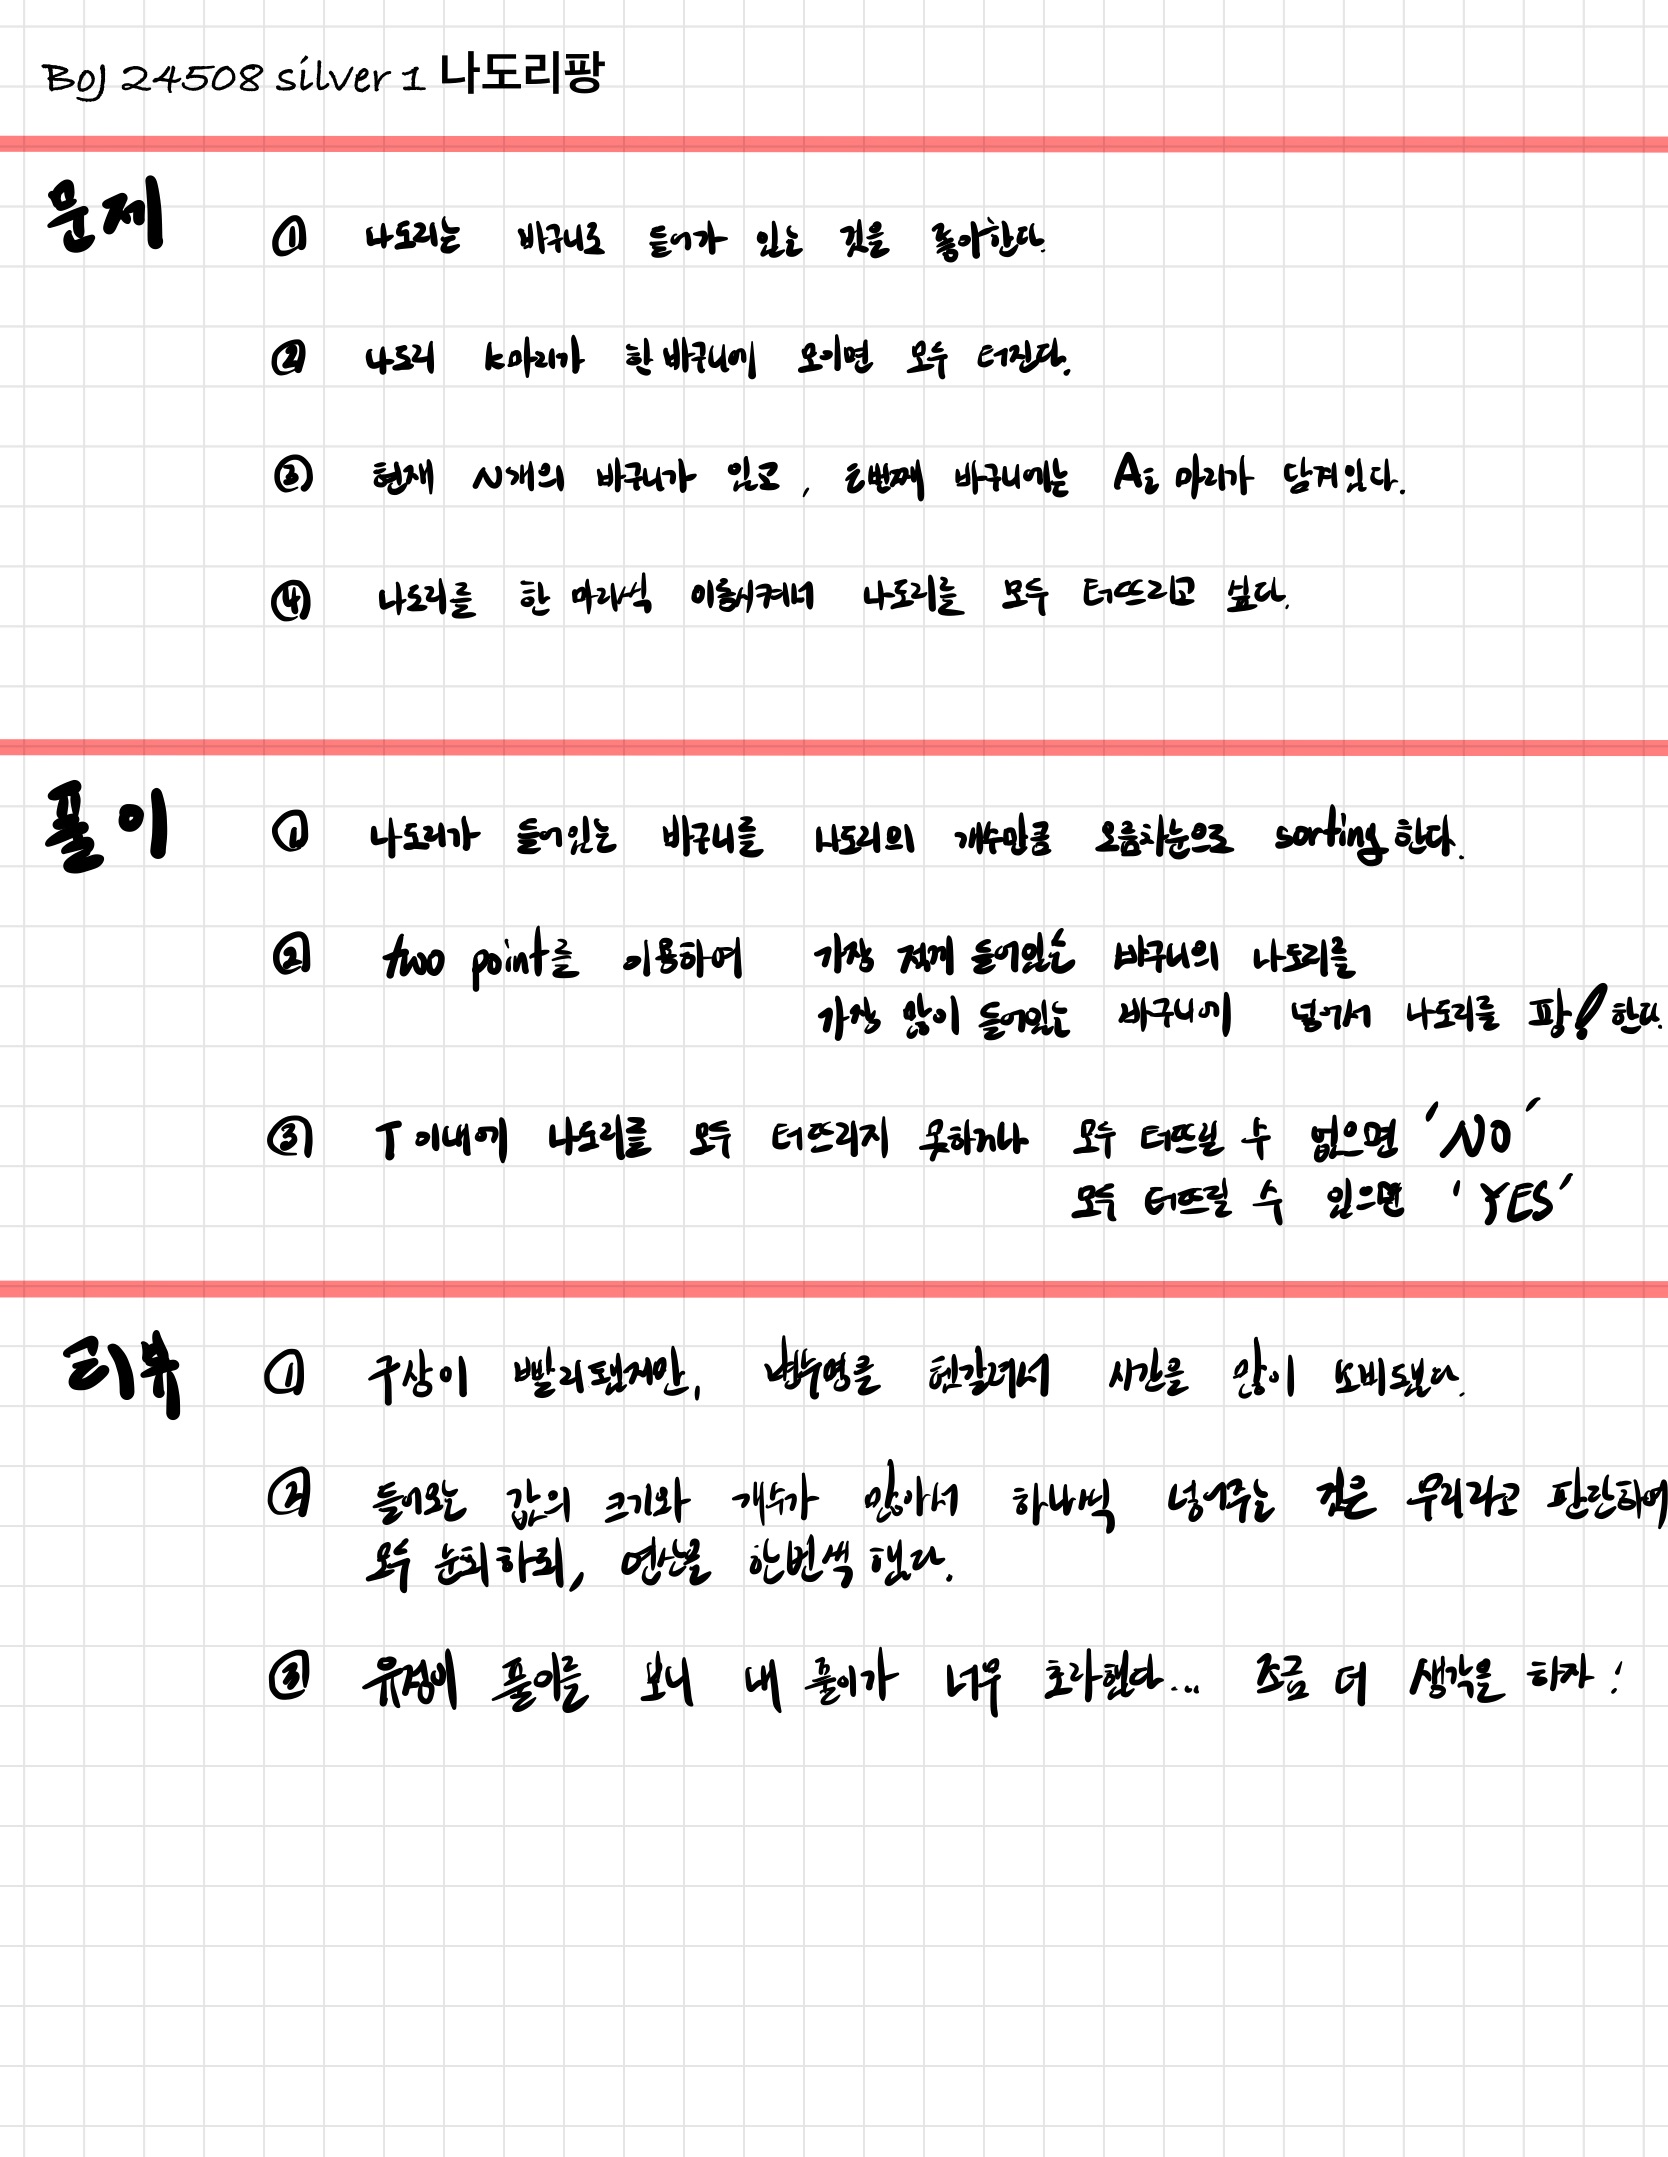 BOJ 24508 silver 1 나도리팡
문제
① 나도리는 바구니로 들어가 있는 것을 좋아한다.
② 나도리 K마리가 한 바구니에 모이면 모두 터진다.
③ 현재 N개의 바구니가 있고, i번째 바구니에는 Ai 마리가 담겨있다.
④ 나도리를 한 마리씩 이동시켜서 나도리를 모두 터뜨리고 싶다.
풀이
① 나도리가 들어있는 바구니를 나도리의 개수만큼 오름차순으로 sorting한다.
② two point를 이용하여 가장 적게 들어있는 바구니의 나도리를
가장 많이 들어있는 바구니에 넣어서 나도리를 팡! 한다.
③ T이내에 나도리를 모두 터뜨리지 못하거나 모두 터뜨릴 수 없으면 'NO'
모두 터뜨릴 수 있으면 'YES'
리뷰
① 구상이 빨리됐지만, 변수명을 헷갈려서 시간을 많이 소비됐다.
② 들어오는 값의 크기와 개수가 많아서 하나씩 넣어주는 것은 무리라고 판단하여
모두 순회하되, 연산을 한번씩 했다.
③ 유정이 풀이를 보니 내 풀이가 너무 초라했다... 조금 더 생각을 하자!